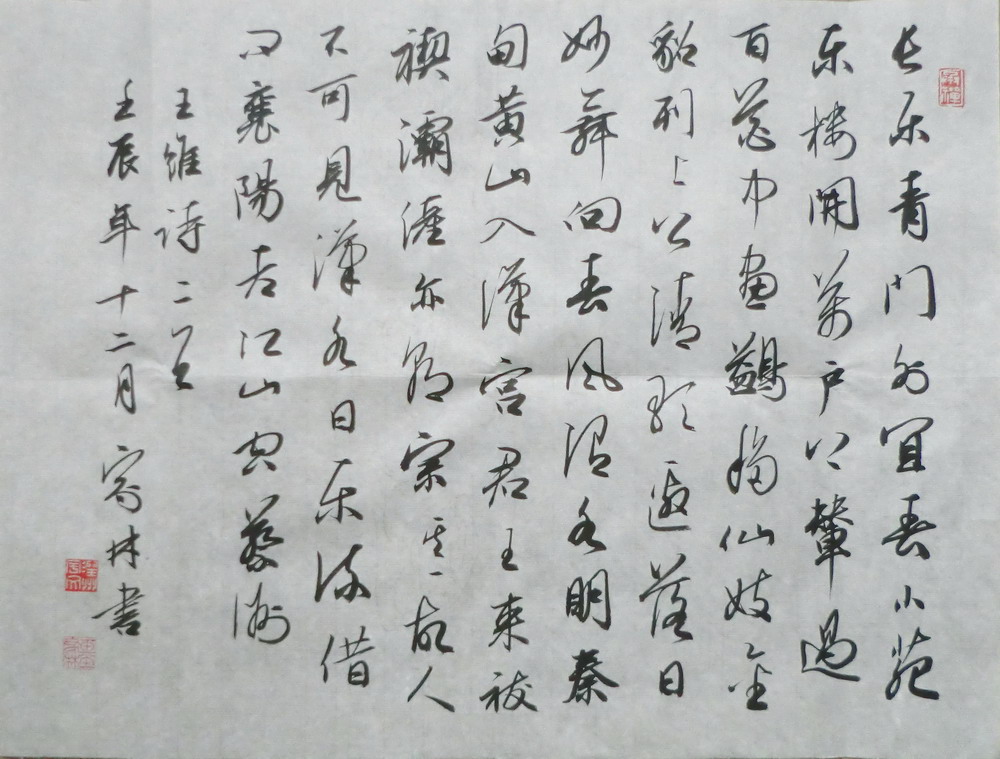 长乐青门外宜春小苑
东楼開萬户上輦過
百花中畫鷁移仙妓金
貂列上公清歌邀落日
妙舞向春風渭水明秦
甸黄山入漢宫君王来祓
禊灞滻亦朝宗其一故人
不可見漢水日东流借
问襄陽老江山空蔡洲
王维诗二首
壬辰年十二月寄林書